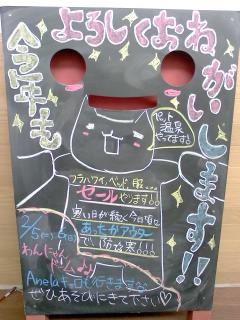 今年も
よろしくおねがいします!!
ペット
温泉
やってます
フラハワイ、ベッド、服...
セールやります!!
寒い日が続く今日頃
あったかアウター
で、防寒!!!
2/5
わんにゃんドームより
Anela
ぜひあそびにきて下さい♡